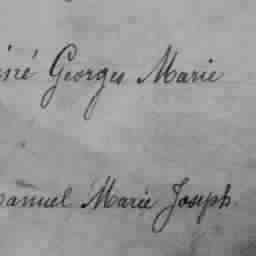 iné Georges Marie
anuel Marie Joseph